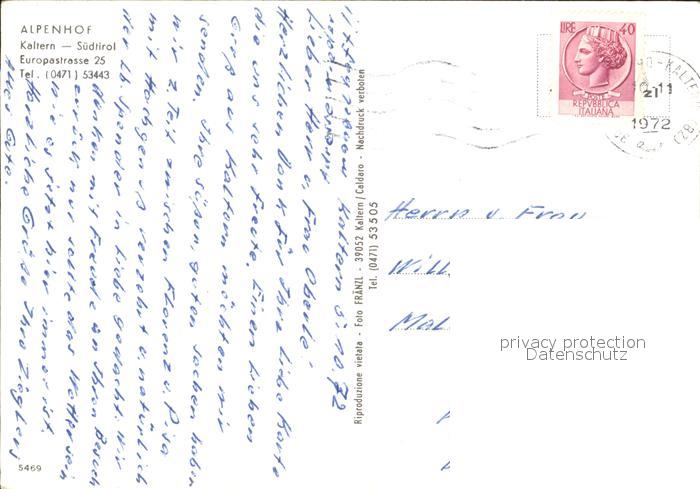 ALPENHOF
Kaltern — Südtirol
Europastrasse 25
Tel. (0471) 53443
LIRE 40
POSTE
REPVBBLICA
ITALIANA
1972
Kaltern 5.10.72
Liebe Herr u. Frau
Herzlichen Dank für Ihre liebe Karte
die uns sehr freute. Einen lieben
Gruß aus Kaltern möchten wir
senden. Ihre süßen, guten Sachen haben
wir z. Teil zwischen Florenz u. Pisa
mit verzehrt u. natürlich
der lb. Spender in Liebe gedacht. Wir
denken mit Freude an Ihren Besuch
zurück, nur sollte das Wetter sein
wie es jetzt hier immer ist.
Herzliche Grüße Ihre
Riproduzione vietata - Foto FRÄNZL - 39052 Kaltern/Caldaro - Nachdruck verboten
Tel. (0471) 53505
Herrn u. Frau
Will
Mal
privacy protection
Datenschutz
5469